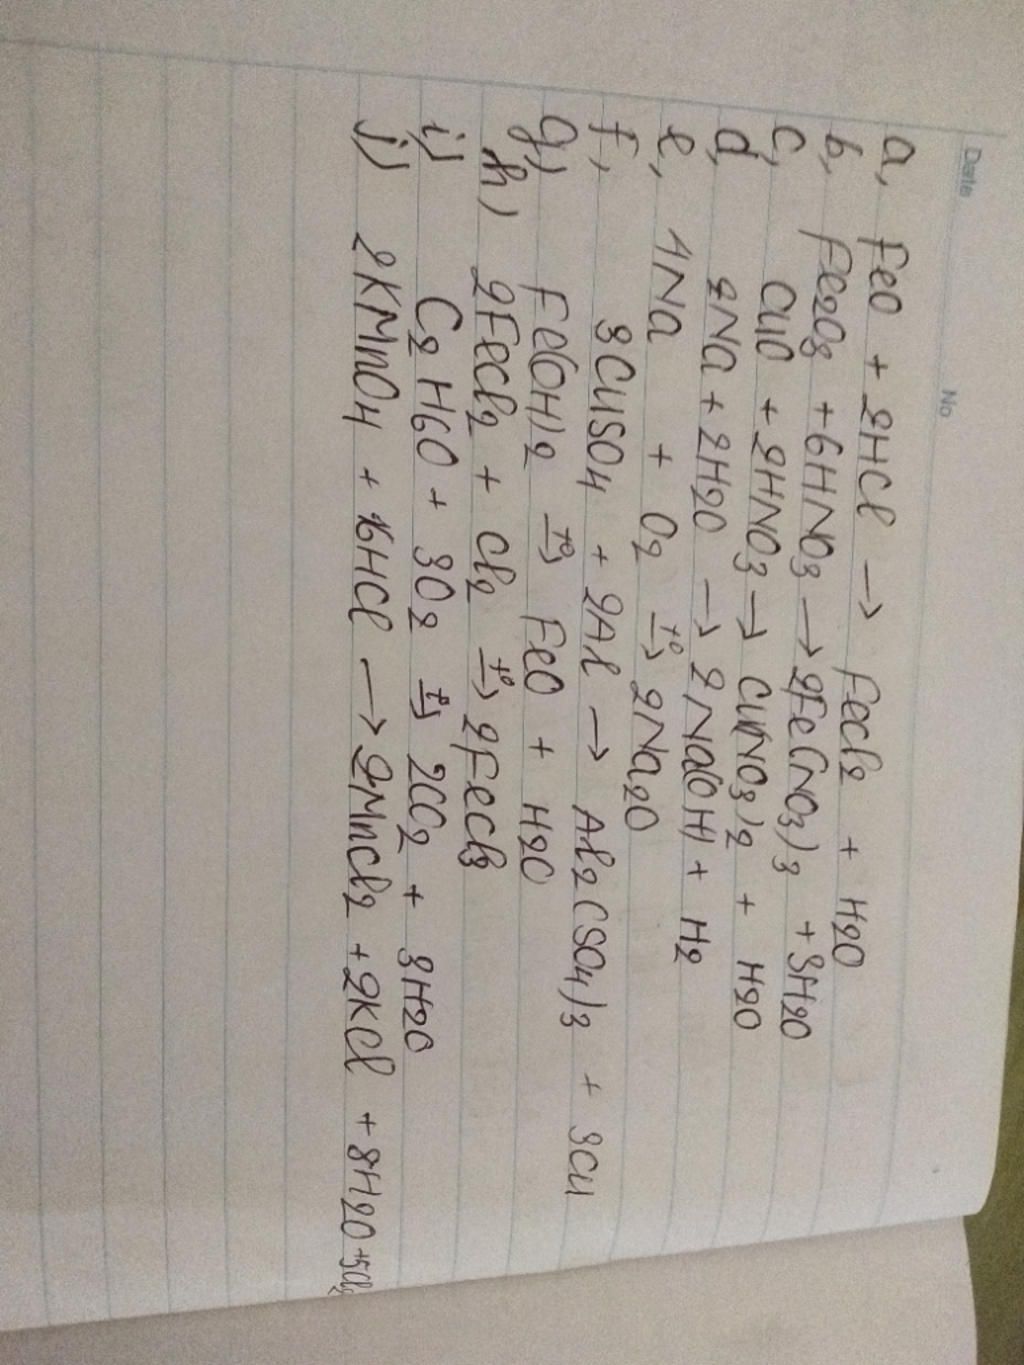 Date No
a, FeO + 2HCl → FeCl2 + H2O
b, Fe2O3 + 6HNO3 → 2Fe(NO3)3 + 3H2O
c, CuO + 2HNO3 → Cu(NO3)2 + H2O
d, 2Na + 2H2O → 2Na(OH) + H2
e, 4Na + O2 t°→ 2Na2O
f, 3CuSO4 + 2Al → Al2(SO4)3 + 3Cu
g) Fe(OH)2 t°→ FeO + H2O
h) 2FeCl2 + Cl2 t°→ 2FeCl3
i) C2H6O + 3O2 t°→ 2CO2 + 3H2O
j) 2KMnO4 + 16HCl → 2MnCl2 + 2KCl + 8H2O + 5Cl2